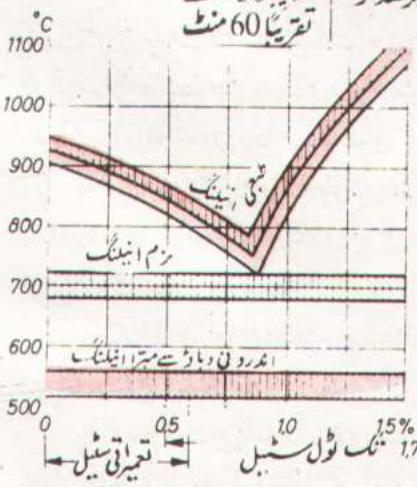 تقریباً 60 منٹ
°C
1100
1000
900
800
700
600
500
نجی انیلنگ
نرم انیلنگ
اندرونی دباؤ سے مبرا انیلنگ
0 0,5 1,0 1,5% 1,7
تعمیراتی سٹیل
تک ٹول سٹیل